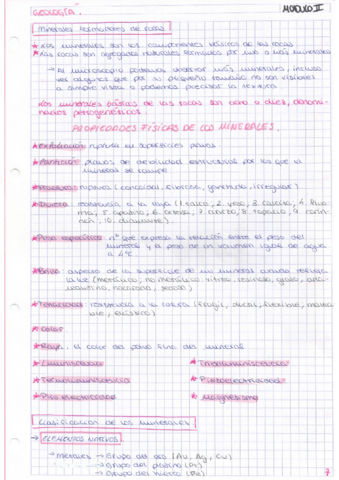 GEOLOGÍA.
MODULO II
Minerales formadores de rocas
★ Los minerales son los componentes básicos de las rocas
★ Las rocas son agregados naturales formados por uno o más minerales
→ Al microscopio podemos observar más minerales, incluso
los que por su pequeño tamaño no son visibles
a simple vista o podemos precisar la
Los minerales básicos de las rocas son ocho o diez, denomi-
nados petrogenéticos.
PROPIEDADES FÍSICAS DE LOS MINERALES.
★ Exfoliación: ruptura en superficies planas
★ Partición: planos de debilidad estructural por los que la
mineral se rompe
★ Fractura: ruptura (concoidal, irregular)
★ Dureza: resistencia a la raya (1. talco, 2. yeso, 3. calcita, 4. fluo
rita, 5. apatito, 6. ortosa, 7. cuarzo, 8. topacio, 9. corin-
dón, 10. diamante).
★ Peso específico: nº que expresa la relación entre el peso del
mineral y el peso de un volumen igual de agua
a 4ºC
★ Brillo: aspecto de la superficie de un mineral cuando refleja
la luz (metálico, no metálico: vítreo, resinoso, graso, ada-
mantino, nacarado, sedoso)
★ Tenacidad: resistencia a la rotura (frágil, ductil, flexible, malea
ble, elástico)
★ Color
★ Raya: el color del polvo fino del mineral
★ Luminiscencia
★ Triboluminiscencia
★ Termoluminiscencia
★ Piezoelectricidad
★ Piroelectricidad
★ Magnetismo
Clasificación de los minerales
→ ELEMENTOS NATIVOS
→ Metales → Grupo del oro (Au, Ag, Cu)
→ Grupo del platino (Pt)
→ Grupo del hierro (Fe)
7